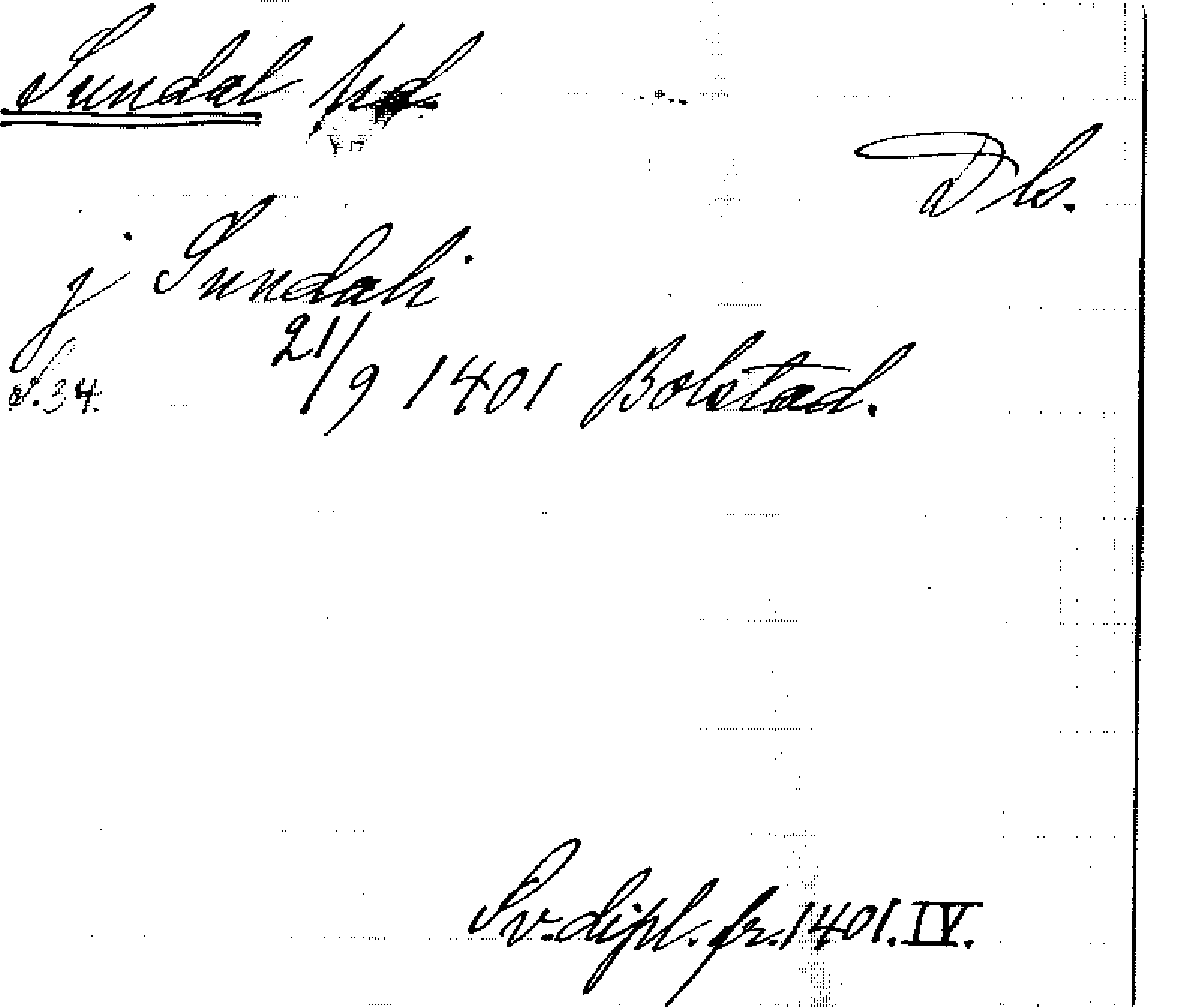 Sundal hd
Dls.
j Sundali
S. 34. 21/9 1401 Bolstad.
Sv. dipl. fr. 1401. IV.